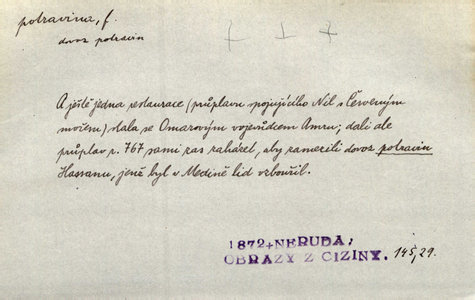 potravina, f.
dovoz potravin
A ještě jedna restaurace (průplavu spojujícího Nil s Červeným
mořem) stala se Omarovým vojevůdcem Amru; dali ale
průplav r. 767 sami zas zaházet, aby zamezili dovoz potravin
Hassanu, jenž byl v Medině lid vzbouřil.
1872+NERUDA;
OBRAZY Z CIZINY. 145,29.